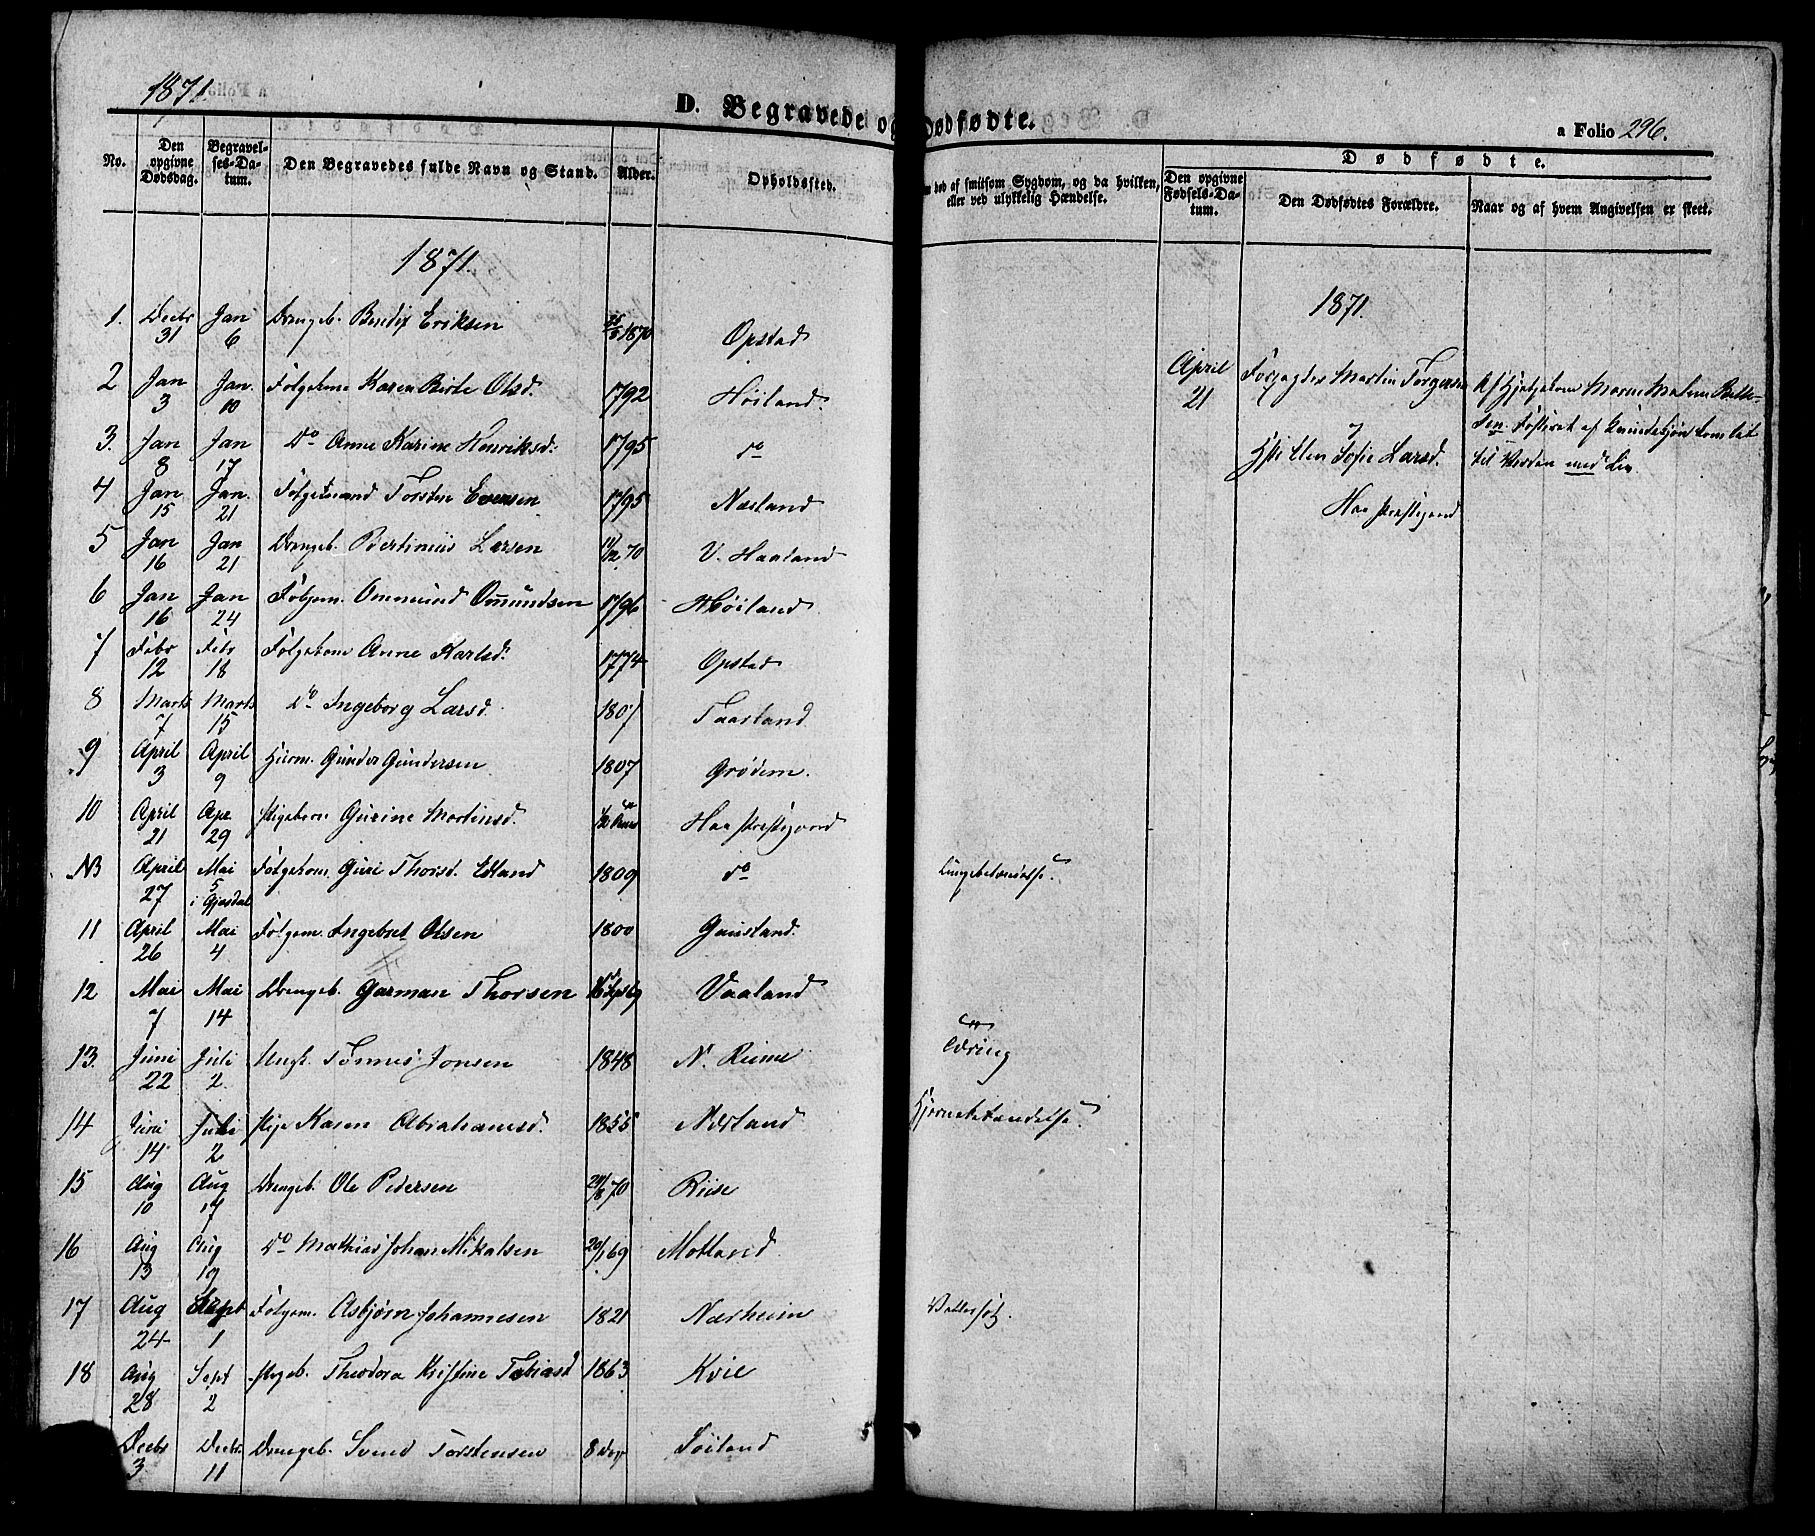 1871.
D. Begravede og Dødfødte.
a Folio 296.
No.
Den opgivne Dødsdag.
Begravelses-Datum.
Den Begravedes fulde Navn og Stand.
Alder.
Opholdssted.
død af smitsom Sygdom, og da hvilken,
eller ved ulykkelig Hændelse.
Dødfødte.
Den opgivne Fødsels-Datum.
Den Dødfødtes Forældre.
Naar og af hvem Angivelsen er skeet.
1871.
1. Decbr 31 Jan 6 Drengeb. Bendix Eriksen 1870 Opstad
2 Jan 3 Jan. 10 Følgekone Karen Birte Olsd. 1792 Høiland.
3. Jan 8 Jan 17 Do Anne Karine Henriksd. 1795 do
4 Jan 15 Jan. 21 Følgemand Torsten Evensen 1795 Næsland
5 Jan 16 Jan 21 Drengeb. Bertinius Larsen 11/12 70 V. Haaland
6 Jan 16 Jan 24 Følgem. Ommund Omundsen 1796 Høiland
7 Febr 12 Febr 18 Følgekone Anne Karlsd. 1774 Opstad
8 Marts 7 Marts 15 Do Ingeborg Larsd. 1807 Taarland
9 April 3 April 9 Gunder Gundersen 1807 Grødem.
10 April 21 Apr. 29 Pigebarn Gurine Martinsd. 1/2 Haa Præstegaard
NB April 27 Mai 5 i Gjesdal Følgekone Guri Thorsd. Edland 1809 do Lungebetændelse.
11 April 26 Mai 4 Følgem. Ingebret Olsen 1800 Gausland.
12 Mai 7 Mai 14 Drengeb. Garman Thorsen Vaaland
13. Juni 22 Juli 2. Ungk. Tønnes Jonsen 1848 N. Reime Tæring
14 Juni 14 Juli 2 Pige Karen Abrahamsd. 1855 Nærland Hjernebetændelse.
15 Aug 10 Aug 17 Drengeb. Ole Pedersen 70 Riise
16 Aug 13 Aug 19 Do Mathias Johan Mikalsen 20/1 69 Motland
17 Aug 24 Sept 1 Følgem. Asbjørn Johannesen 1821 Nærheim Vattersot.
18 Aug 28 Sept 2 Pigeb. Theodora Kristine Tobiasd 1863 Kvie
Decbr 3 Decbr. 11 Drengeb. Svend Torstensen 8 Dage Høiland
1871.
April 21
Forpagter Martin Torgersen
og
Ellen Sofie Larsd.
Haa Præstegaard
Af Hjelpekone Maren Malene
Fosteret af Kvindekjøn kom let
til Verden med Liv.